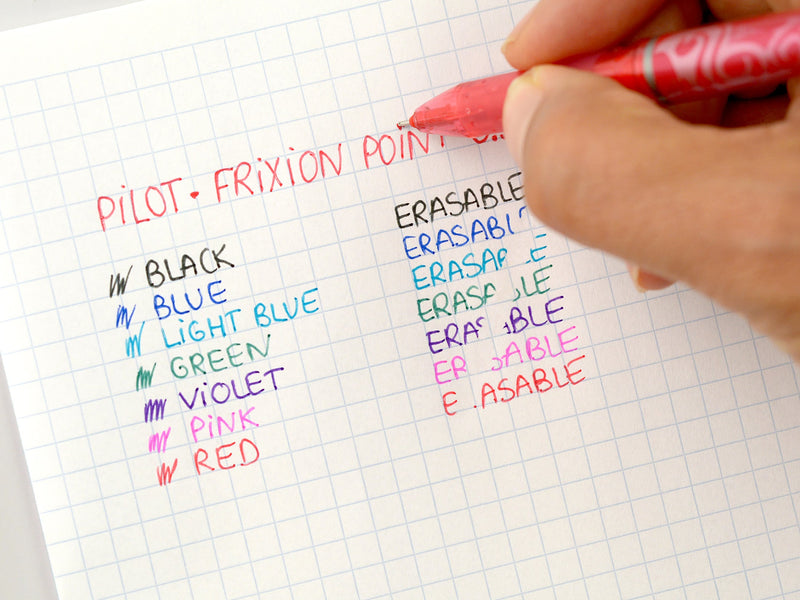 PiLOT · FRiXiON POiNT
BLACK
BLUE
LiGHT BLUE
GREEN
ViOLET
PiNK
RED
ERASABLE
ERASABL
ERASA E
ERASA LE
ERA BLE
ER ABLE
E ASABLE